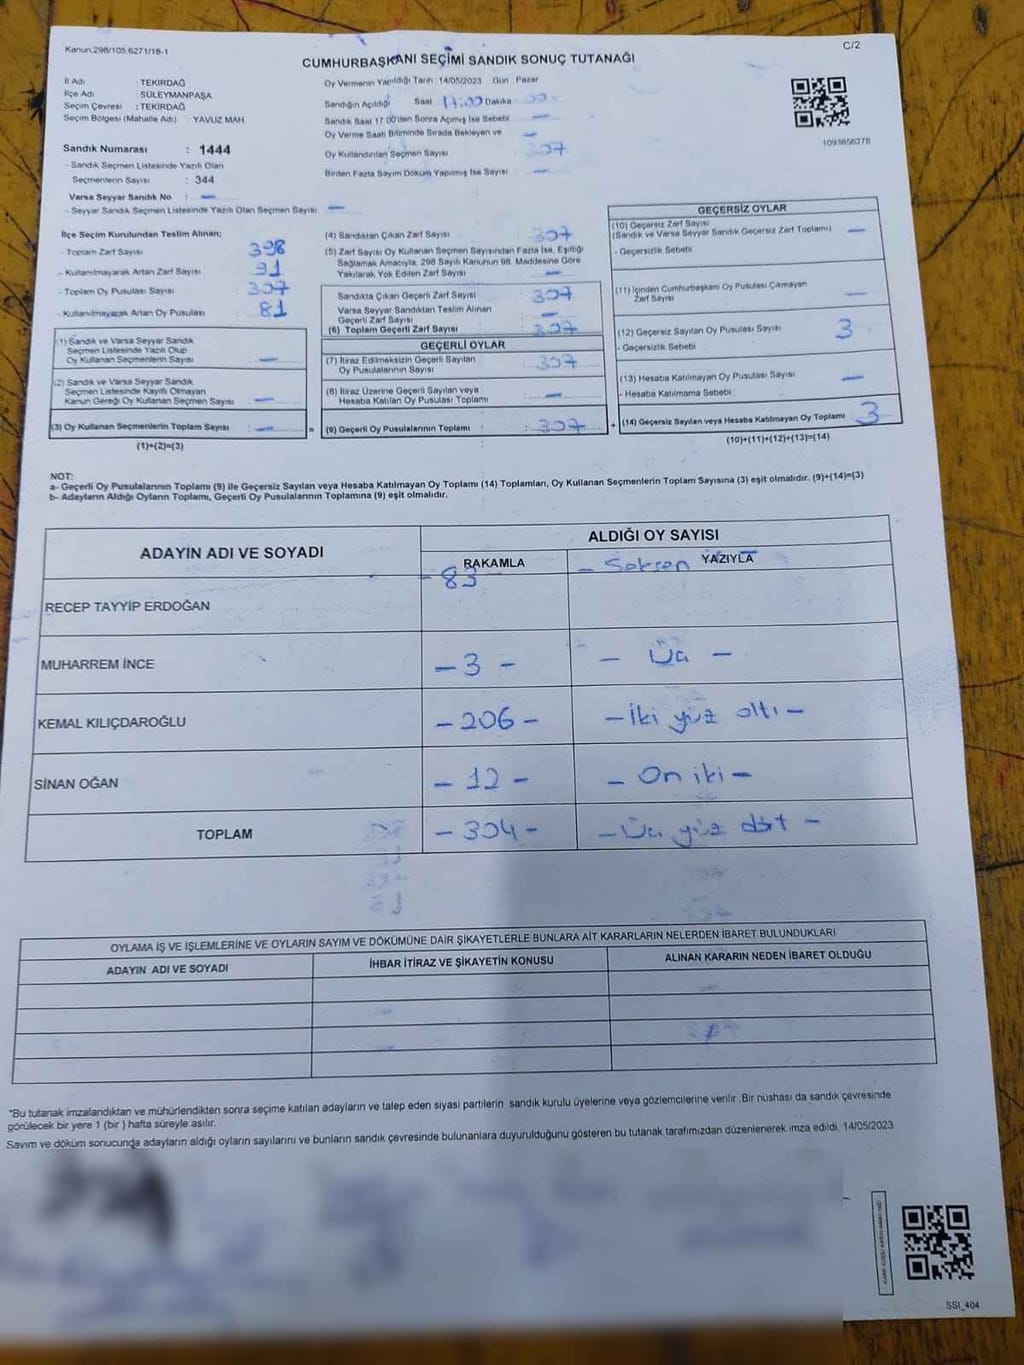 Kanun.298/105.6271/18-1
C/2
CUMHURBAŞKANI SEÇİMİ SANDIK SONUÇ TUTANAĞI
İl Adı : TEKİRDAĞ
İlçe Adı : SÜLEYMANPAŞA
Seçim Çevresi : TEKİRDAĞ
Seçim Bölgesi (Mahalle Adı) : YAVUZ MAH
Oy Vermenin Yapıldığı Tarih : 14/05/2023 Gün : Pazar
Sandığın Açıldığı Saat 17:00 Dakika
Sandık Saat 17.00'den Sonra Açımış İse Sebebi : —
Oy Verme Saati Bitiminde Sırada Bekleyen ve —
Oy Kullandırılan Seçmen Sayısı : 307
Birden Fazla Sayım Döküm Yapılmış İse Sayısı : —
1093856278
Sandık Numarası : 1444
- Sandık Seçmen Listesinde Yazılı Olan
Seçmenlerin Sayısı : 344
Varsa Seyyar Sandık No : —
- Seyyar Sandık Seçmen Listesinde Yazılı Olan Seçmen Sayısı : —
İlçe Seçim Kurulundan Teslim Alınan;
- Toplam Zarf Sayısı : 398
- Kullanılmayarak Artan Zarf Sayısı : 91
- Toplam Oy Pusulası Sayısı : 307
- Kullanılmayarak Artan Oy Pusulası : 81
(1) Sandık ve Varsa Seyyar Sandık
Seçmen Listesinde Yazılı Olup
Oy Kullanan Seçmenlerin Sayısı : —
(2) Sandık ve Varsa Seyyar Sandık
Seçmen Listesinde Kayıtlı Olmayan
Kanun Gereği Oy Kullanan Seçmen Sayısı : —
(3) Oy Kullanan Seçmenlerin Toplam Sayısı : —
(1)+(2)=(3)
(4) Sandıktan Çıkan Zarf Sayısı : 307
(5) Zarf Sayısı Oy Kullanan Seçmen Sayısından Fazla İse, Eşitliği
Sağlamak Amacıyla, 298 Sayılı Kanunun 98. Maddesine Göre
Yakılarak Yok Edilen Zarf Sayısı : —
Sandıkta Çıkan Geçerli Zarf Sayısı : 307
Varsa Seyyar Sandıktan Teslim Alınan
Geçerli Zarf Sayısı : —
(6) Toplam Geçerli Zarf Sayısı : 307
GEÇERLİ OYLAR
(7) İtiraz Edilmeksizin Geçerli Sayılan
Oy Pusulasının Sayısı : 307
(8) İtiraz Üzerine Geçerli Sayılan veya
Hesaba Katılan Oy Pusulası Toplamı : —
= (9) Geçerli Oy Pusulalarının Toplamı : 307 +
GEÇERSİZ OYLAR
(10) Geçersiz Zarf Sayısı
(Sandık ve Varsa Seyyar Sandık Geçersiz Zarf Toplamı) —
- Geçersizlik Sebebi
(11) İçinden Cumhurbaşkanı Oy Pusulası Çıkmayan
Zarf Sayısı —
(12) Geçersiz Sayılan Oy Pusulası Sayısı : 3
- Geçersizlik Sebebi
(13) Hesaba Katılmayan Oy Pusulası Sayısı : —
- Hesaba Katılmama Sebebi :
(14) Geçersiz Sayılan veya Hesaba Katılmayan Oy Toplamı : 3
(10)+(11)+(12)+(13)=(14)
NOT:
a- Geçerli Oy Pusulalarının Toplamı (9) ile Geçersiz Sayılan veya Hesaba Katılmayan Oy Toplamı (14) Toplamları, Oy Kullanan Seçmenlerin Toplam Sayısına (3) eşit olmalıdır. (9)+(14)=(3)
b- Adayların Aldığı Oyların Toplamı, Geçerli Oy Pusulalarının Toplamına (9) eşit olmalıdır.
ADAYIN ADI VE SOYADI
ALDIĞI OY SAYISI
RAKAMLA
YAZIYLA
RECEP TAYYİP ERDOĞAN - 83 - Seksen
MUHARREM İNCE - 3 - - Üç -
KEMAL KILIÇDAROĞLU - 206 - - İki yüz altı -
SİNAN OĞAN - 12 - - On iki -
TOPLAM - 304 - - Üç yüz dört -
OYLAMA İŞ VE İŞLEMLERİNE VE OYLARIN SAYIM VE DÖKÜMÜNE DAİR ŞİKAYETLERLE BUNLARA AİT KARARLARIN NELERDEN İBARET BULUNDUKLARI
ADAYIN ADI VE SOYADI
İHBAR İTİRAZ VE ŞİKAYETİN KONUSU
ALINAN KARARIN NEDEN İBARET OLDUĞU
*Bu tutanak imzalandıktan ve mühürlendikten sonra seçime katılan adayların ve talep eden siyasi partilerin sandık kurulu üyelerine veya gözlemcilerine verilir .Bir nüshası da sandık çevresinde
görülecek bir yere 1 (bir ) hafta süreyle asılır.
Sayım ve döküm sonucunda adayların aldığı oyların sayılarını ve bunların sandık çevresinde bulunanlara duyurulduğunu gösteren bu tutanak tarafımızdan düzenlenerek imza edildi. 14/05/2023
SSI_404